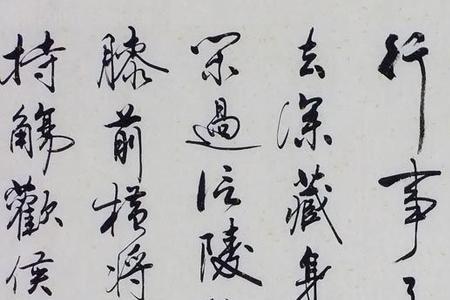 行事了
去深藏身
閑過信陵
膝前横将
持觴勸侯